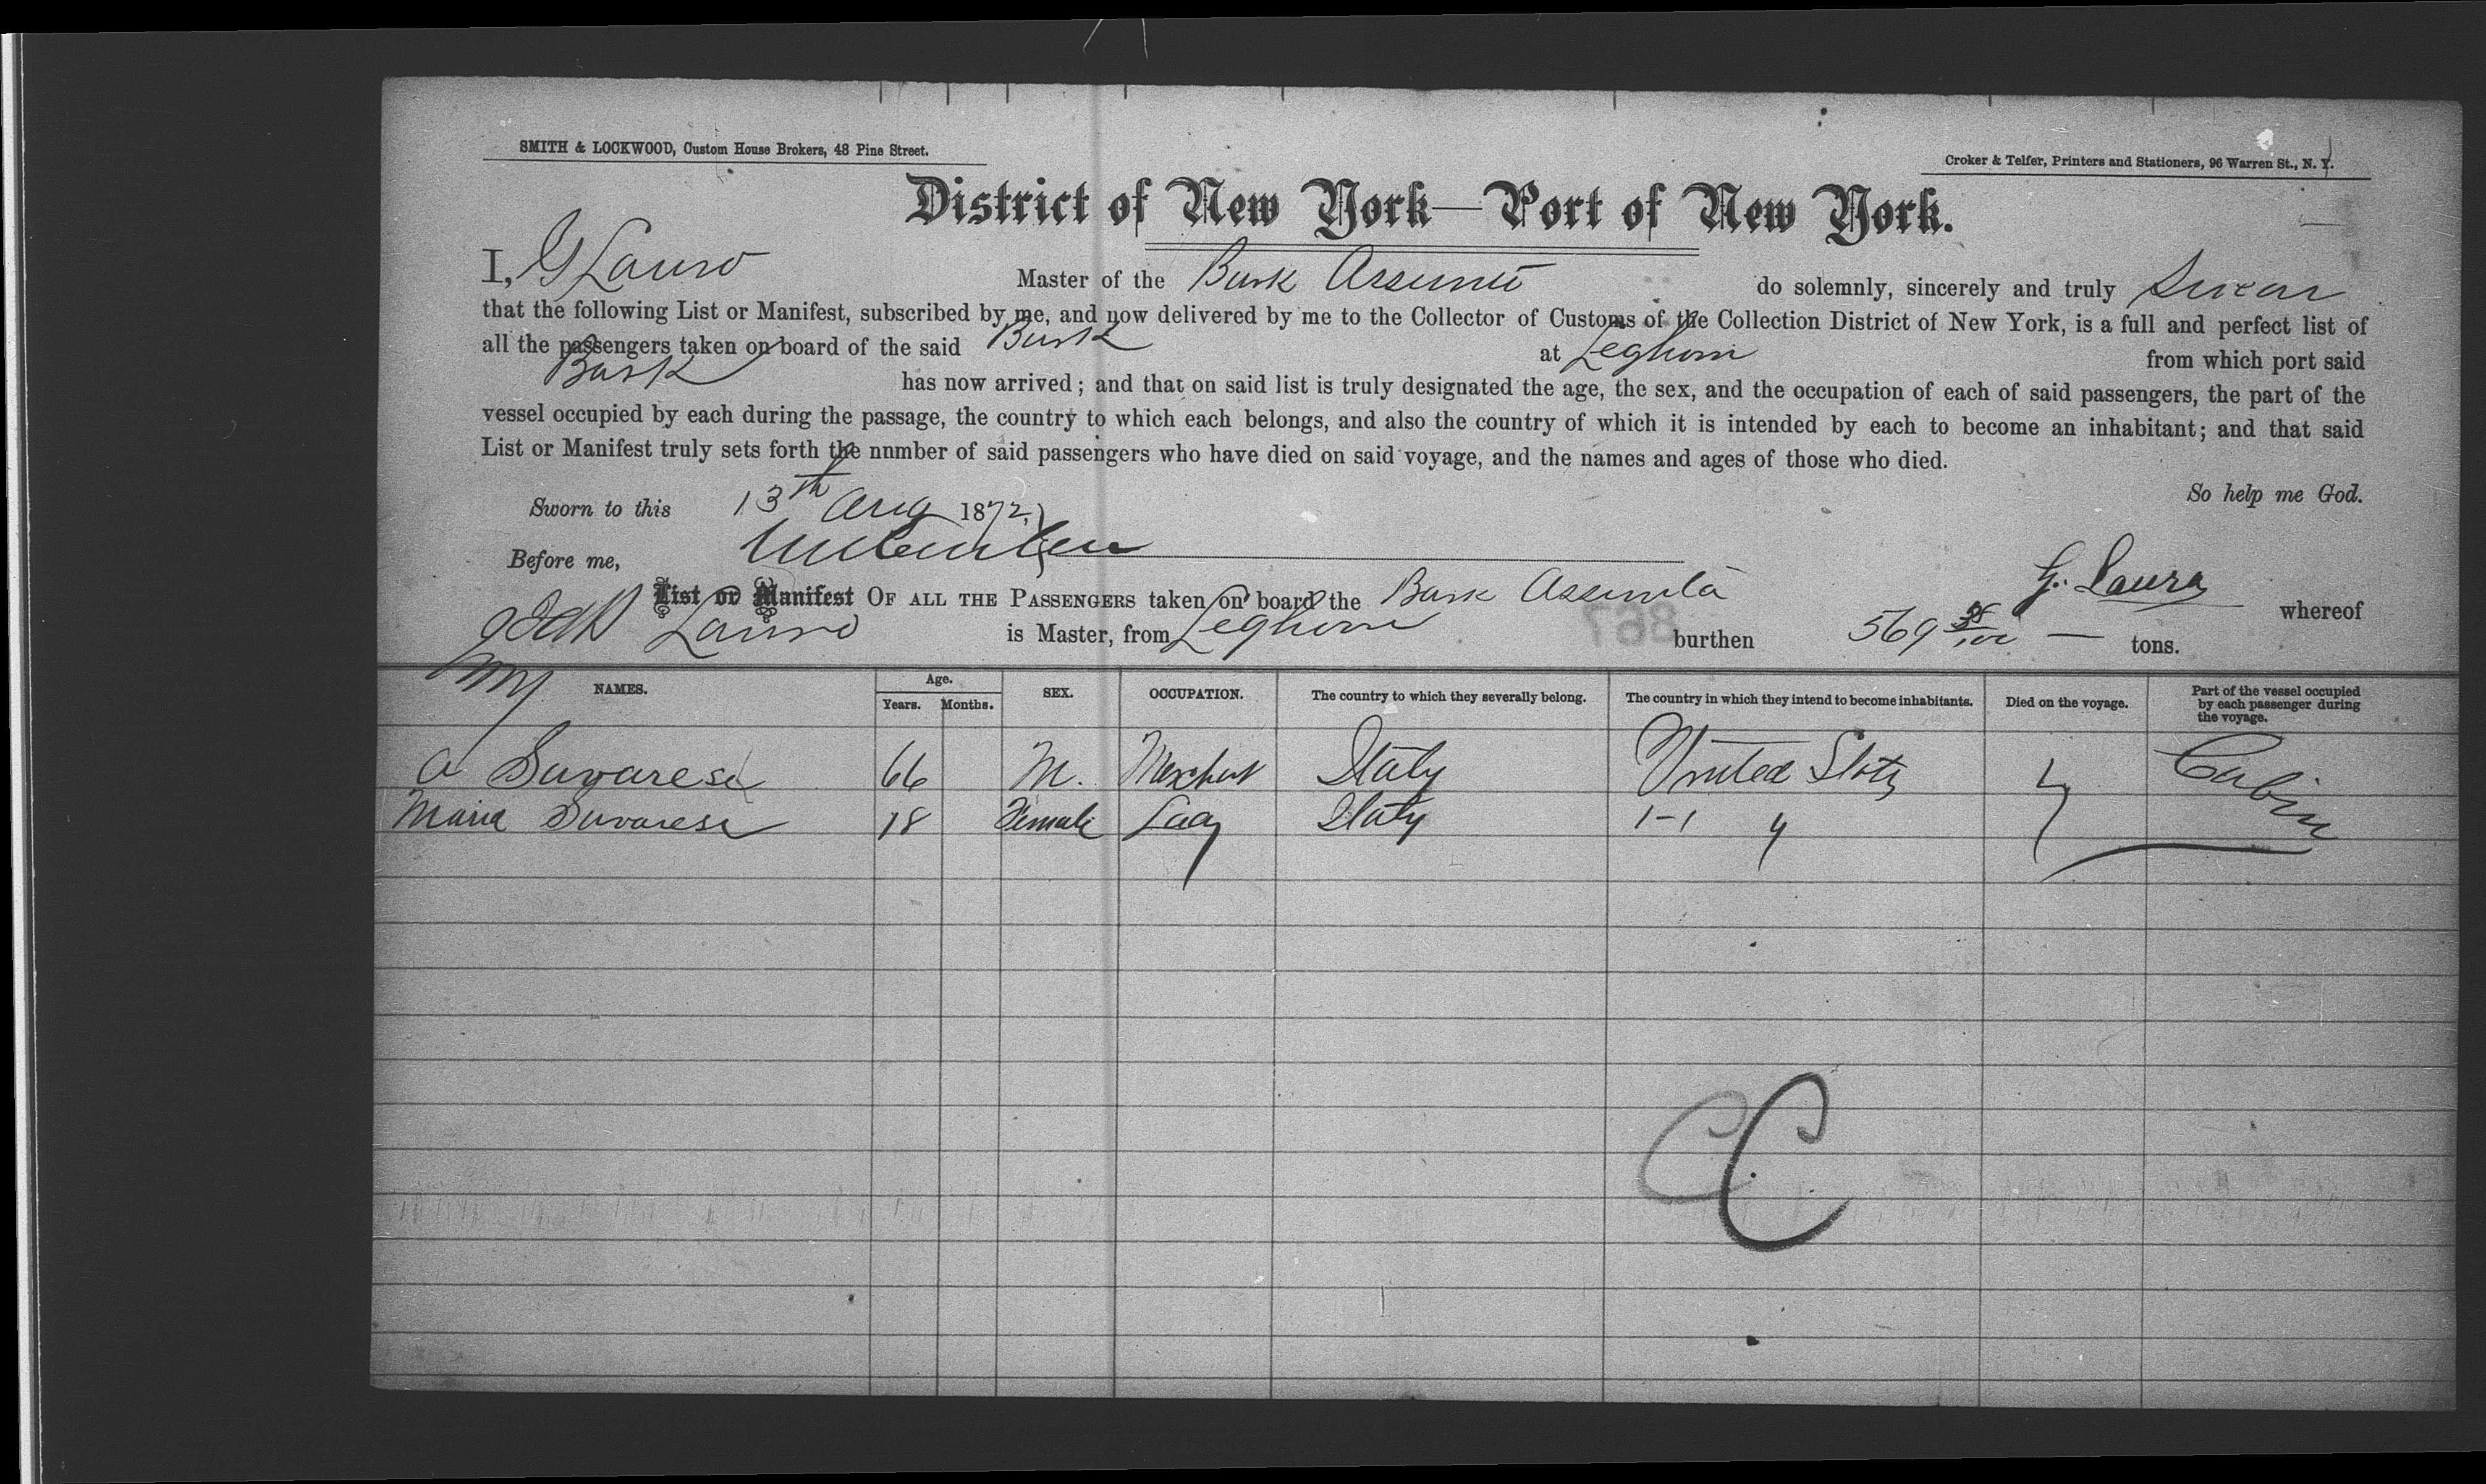 SMITH & LOCKWOOD, Custom House Brokers, 48 Pine Street.
Croker & Telfer, Printers and Stationers, 96 Warren St., N. Y.
District of New York—Port of New York.
I, G Lauro Master of the Bark Assunta do solemnly, sincerely and truly Swear
that the following List or Manifest, subscribed by me, and now delivered by me to the Collector of Customs of the Collection District of New York, is a full and perfect list of
all the passengers taken on board of the said Bark at Leghorn from which port said
Bark has now arrived; and that on said list is truly designated the age, the sex, and the occupation of each of said passengers, the part of the
vessel occupied by each during the passage, the country to which each belongs, and also the country of which it is intended by each to become an inhabitant; and that said
List or Manifest truly sets forth the nnmber of said passengers who have died on said voyage, and the names and ages of those who died.
So help me God.
Sworn to this 13th Aug 1872,
Before me,
G. Lauro
List or Manifest OF ALL THE PASSENGERS taken on board the Bark Assunta whereof
Lauro is Master, from Leghorn burthen 569 tons.
NAMES. Age. Years. Months. SEX. OCCUPATION. The country to which they severally belong. The country in which they intend to become inhabitants. Died on the voyage. Part of the vessel occupied by each passenger during the voyage.
A Savarese 66 M. Merchant Italy United States Cabin
Maria Savarese 18 Female Lady Italy
C C